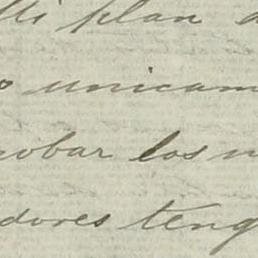 plan
unicam
obar los
dores teng